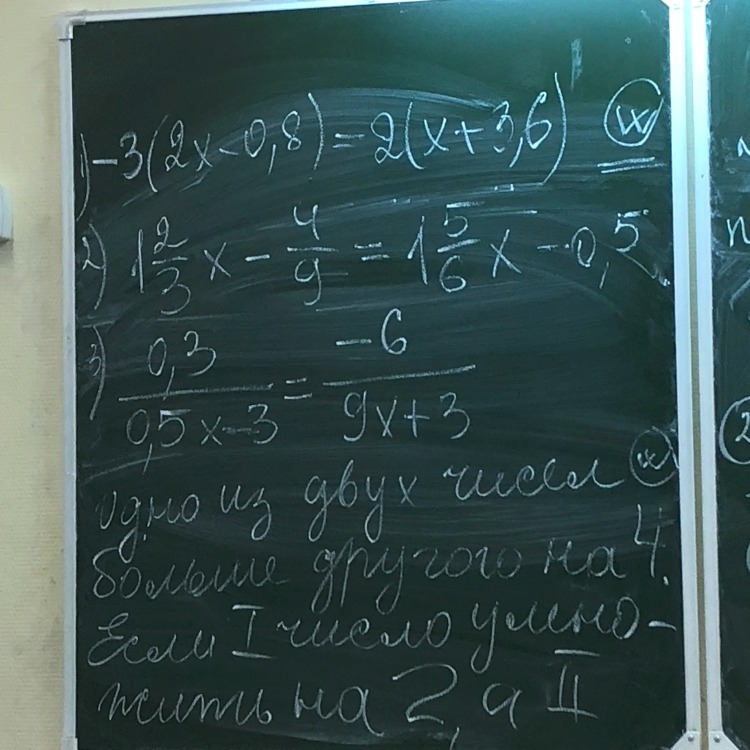 1) -3(2x-0,8)=-2(x+3,6) (w)
2) 1 2/3 x - 4/9 = 1 5/6 x - 0,5
3) 0,3/(0,5x-3) = -6/(9x+3)
одно из двух чисел
больше другого на 4.
Если I число умно-
жить на 2, а II